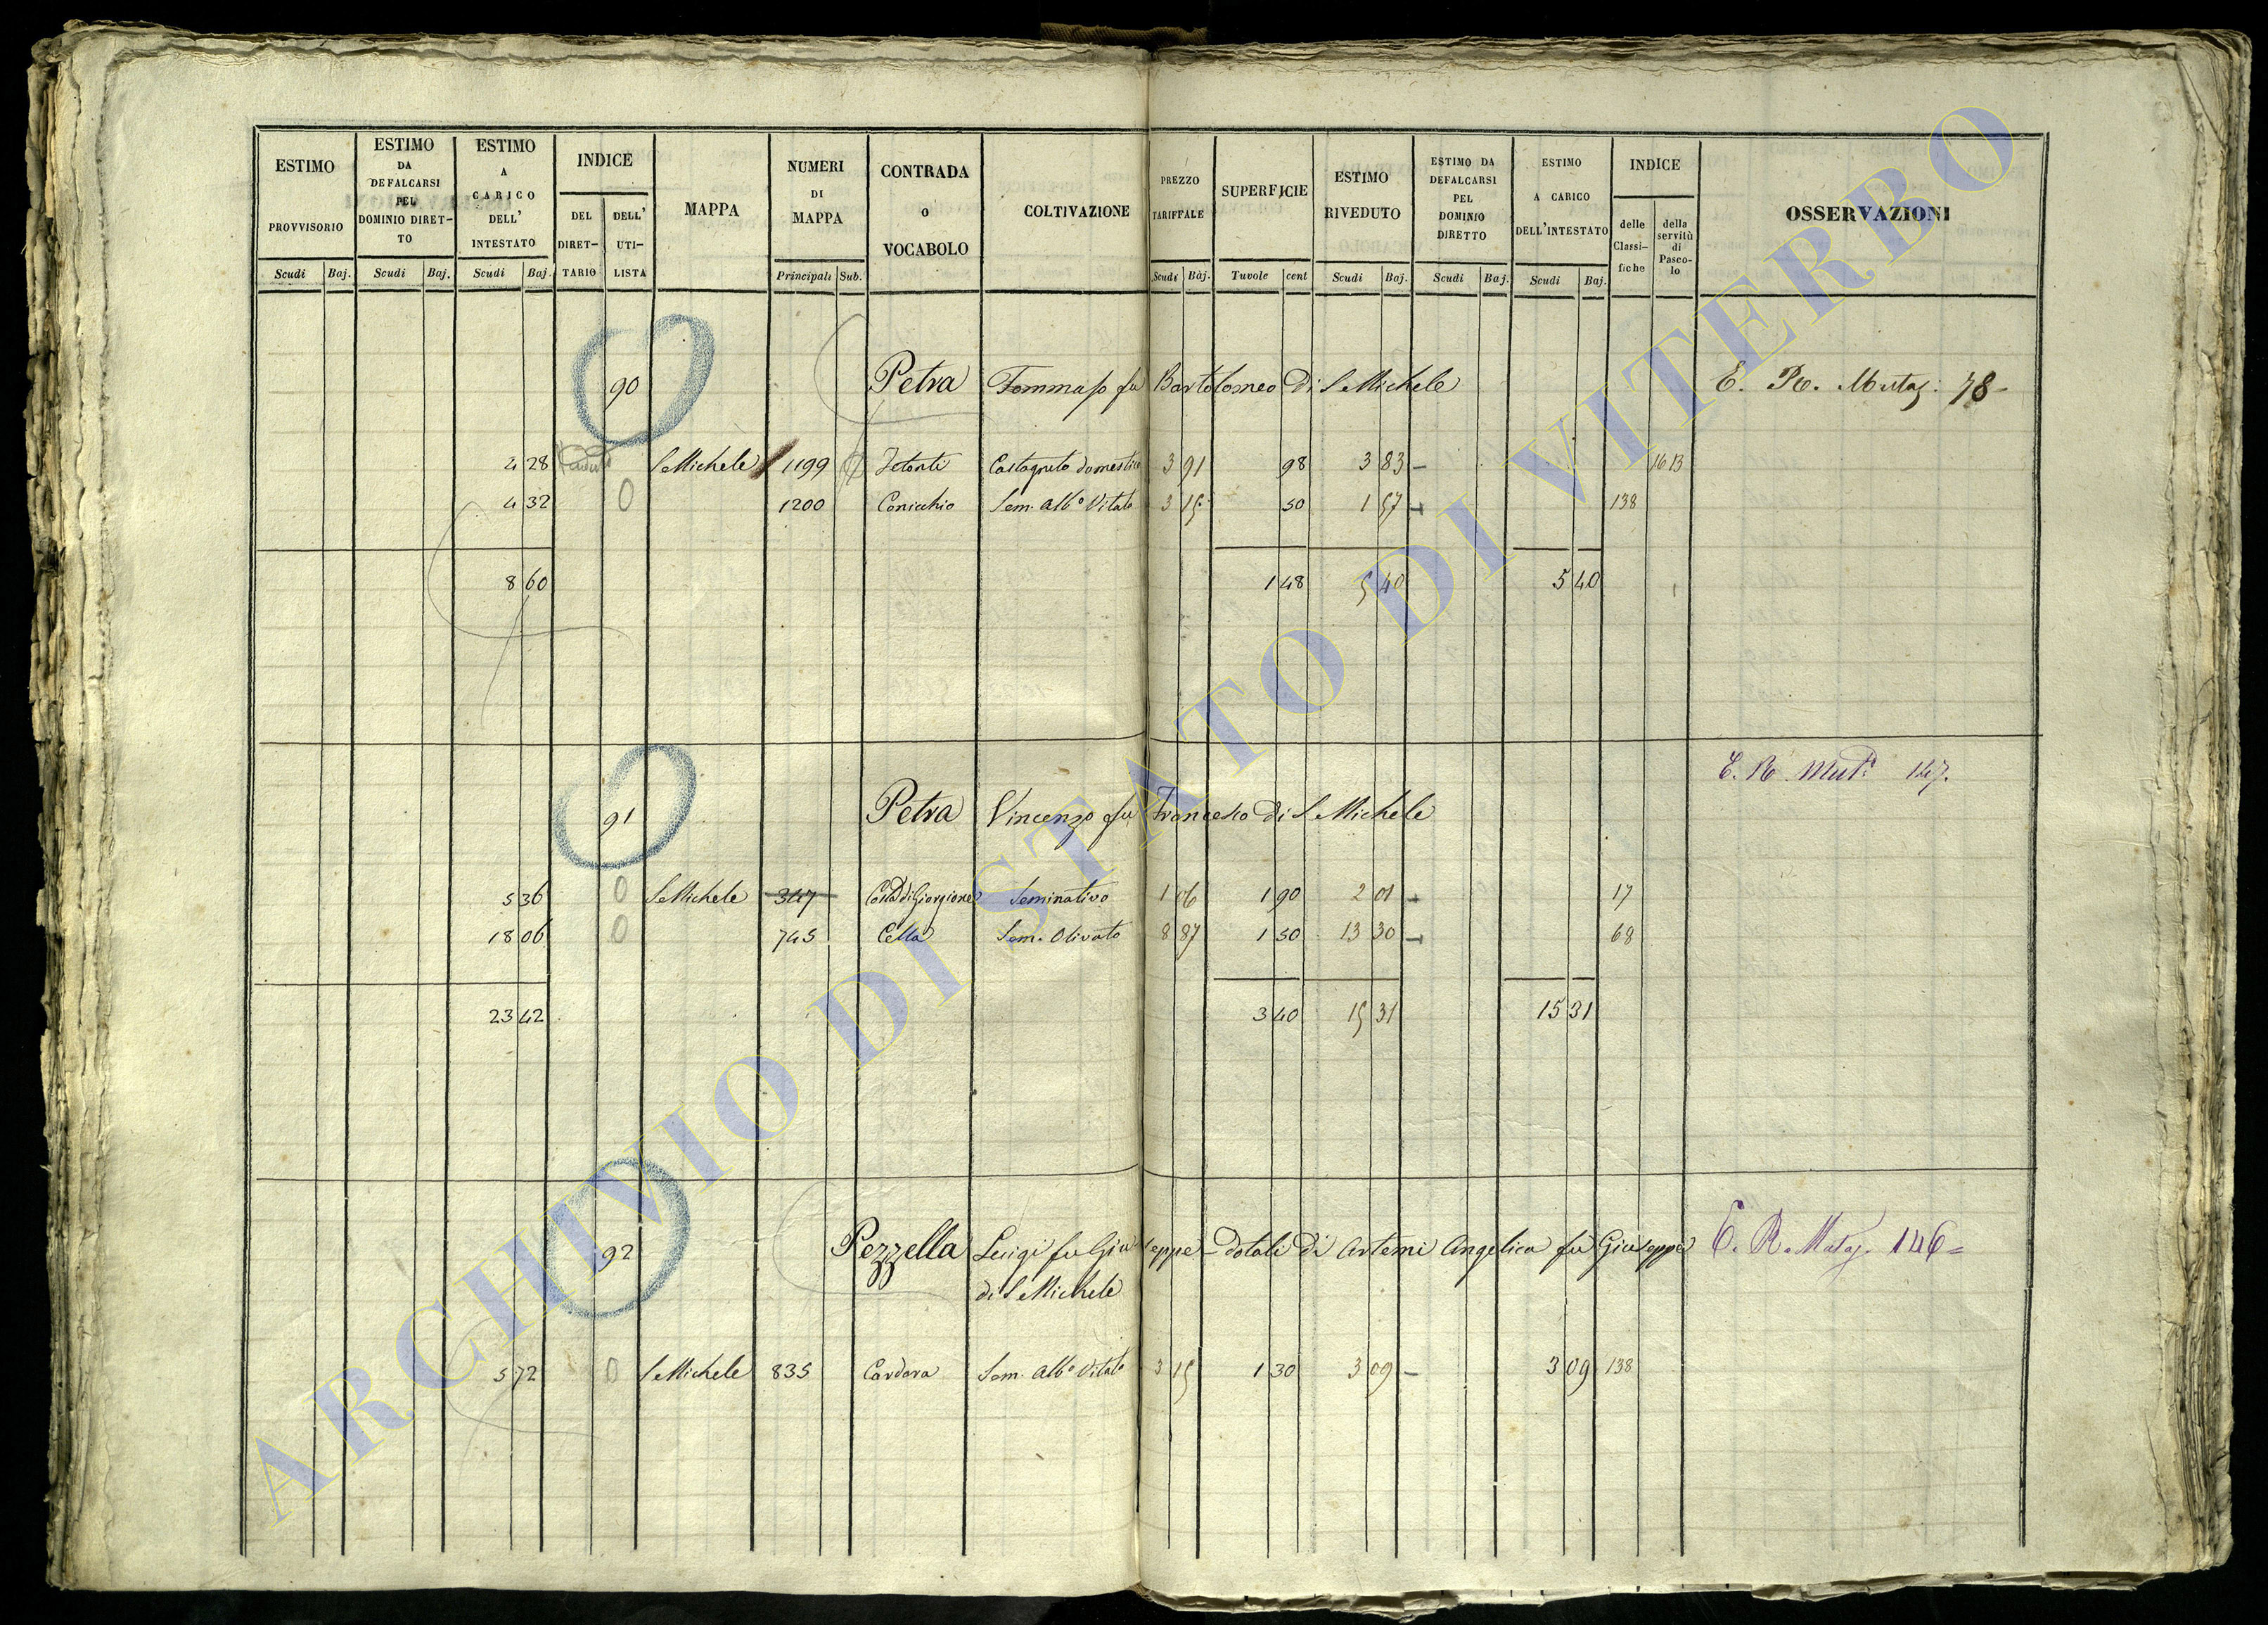 ESTIMO PROVVISORIO
Scudi Baj.
ESTIMO DA DEFALCARSI PEL DOMINIO DIRET-TO
Scudi Baj.
ESTIMO A CARICO DELL' INTESTATO
Scudi Baj.
INDICE
DEL DIRET-TARIO
DELL' UTI-LISTA
MAPPA
NUMERI DI MAPPA
Principali Sub.
CONTRADA O VOCABOLO
COLTIVAZIONE
PREZZO TARIFFALE
Scudi Baj.
SUPERFICIE
Tavole cent
ESTIMO RIVEDUTO
Scudi Baj.
ESTIMO DA DEFALCARSI PEL DOMINIO DIRETTO
Scudi Baj.
ESTIMO A CARICO DELL'INTESTATO
Scudi Baj.
INDICE
delle Classi-fiche
della servitù di Pasco-lo
OSSERVAZIONI
90 Petra Tommaso fu Bartolomeo di S Michele E. R. Mutaz: 78
4 28 S Michele 1199 Castagneto domestico 3 91 98 3 83 – 16 13
4 32 0 1200 Conicchio Sem. Alb.o Vitato 3 15 50 1 57 138
8 60 1 48 5 40 5 40
E. R. Mut. 147.
91 Petra Vincenzo fu Francesco di S Michele
5 36 0 S Michele 347 Costa di Giorgione Seminativo 1 06 1 90 2 01 17
18 06 0 745 Cella Sem. Olivato 8 87 1 50 13 30 68
23 42 3 40 15 31 15 31
92 Pezzella Luigi fu Giuseppe - dotali di Artemi Angelica fu Giuseppe E. R. Mutaz. 146=
di S Michele
5 72 0 S Michele 835 Cardara Sem. Alb.o Vitato 3 15 1 30 3 09 – 3 09 138
ARCHIVIO DI STATO DI VITERBO